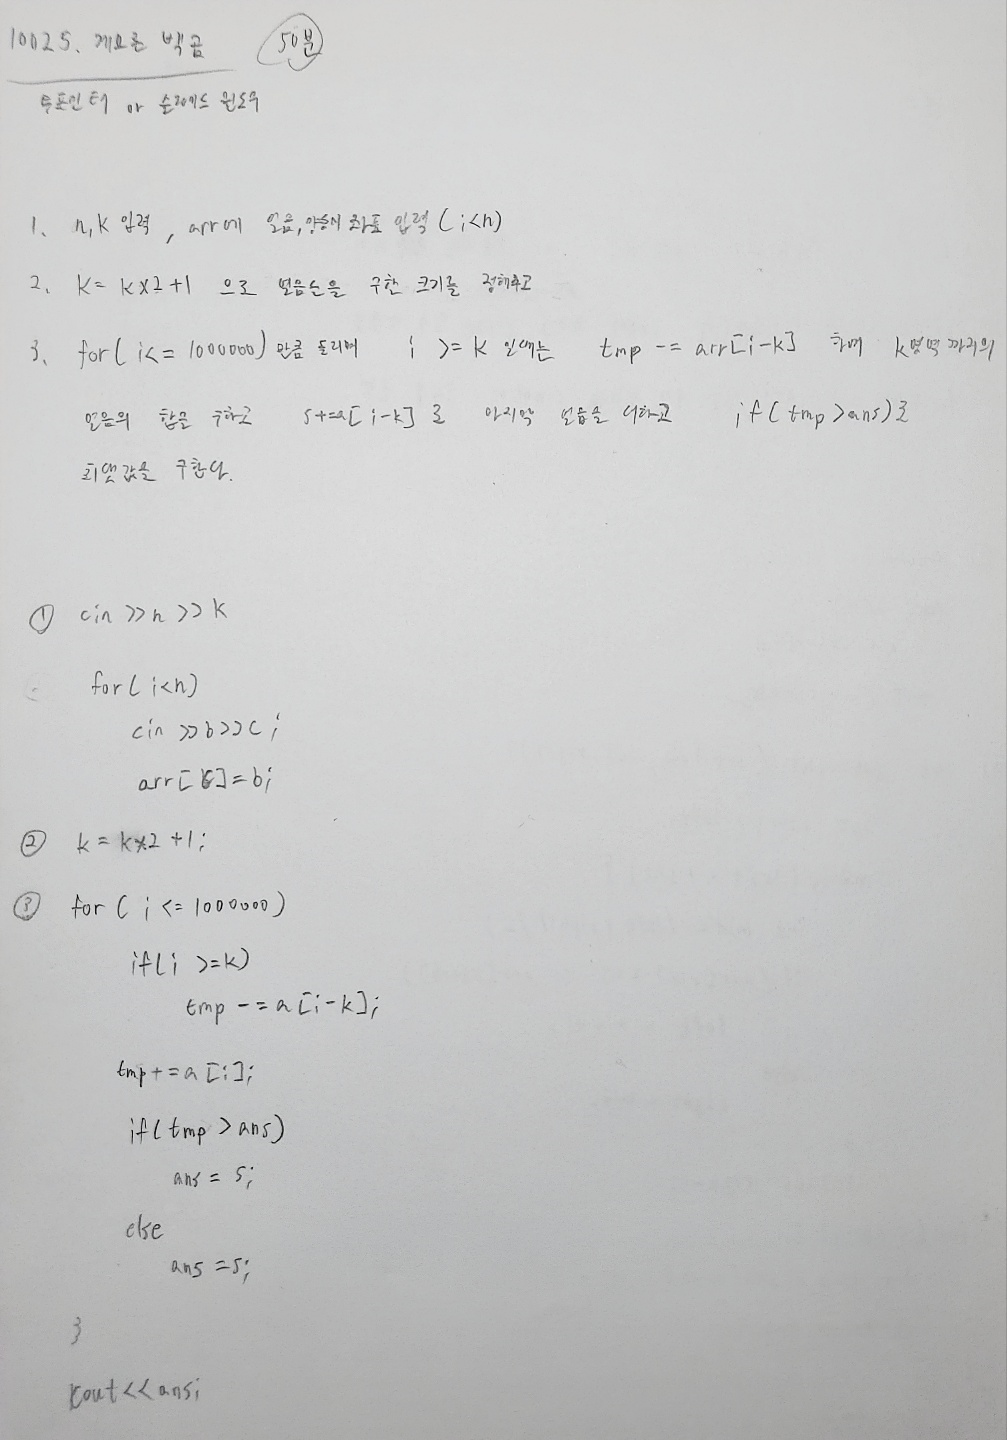 10025. 게으른 백곰 50분
투포인터 or 슬라이드 윈도우
1. n,k 입력, arr에 얼음,양동이 좌표 입력 (i<n)
2. k= k×2+1 으로 얼음순을 구한 크기를 정해주고
3. for( i<= 1000000) 만큼 돌리며 i >= k 일때는 tmp -= arr[i-k] 하며 k영역 까지의
얼음의 합을 구하고 s+=a[i-k] 로 마지막 얼음을 더하고 if(tmp>ans)로
최댓값을 구한다.
① cin >>n >>k
for(i<n)
cin >>b>>c;
arr[c]=b;
② k = k×2 +1;
③ for ( i <= 1000000)
if(i >=k)
tmp -=a[i-k];
tmp+=a[i];
if(tmp >ans)
ans = s;
else
ans =s;
}
cout<<ans;